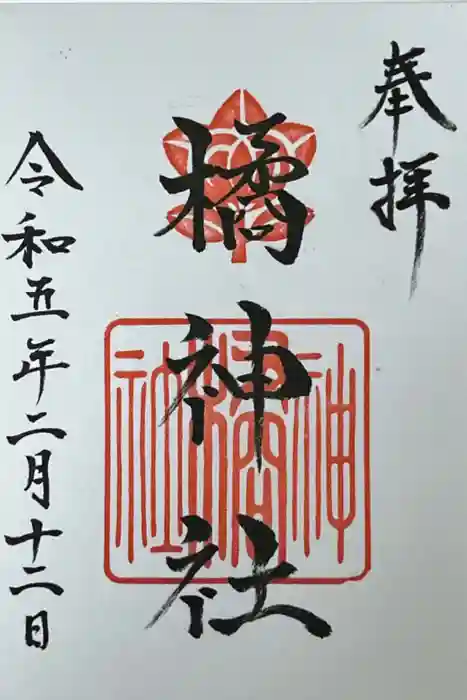 奉拝
橘神社
令和五年二月十二日